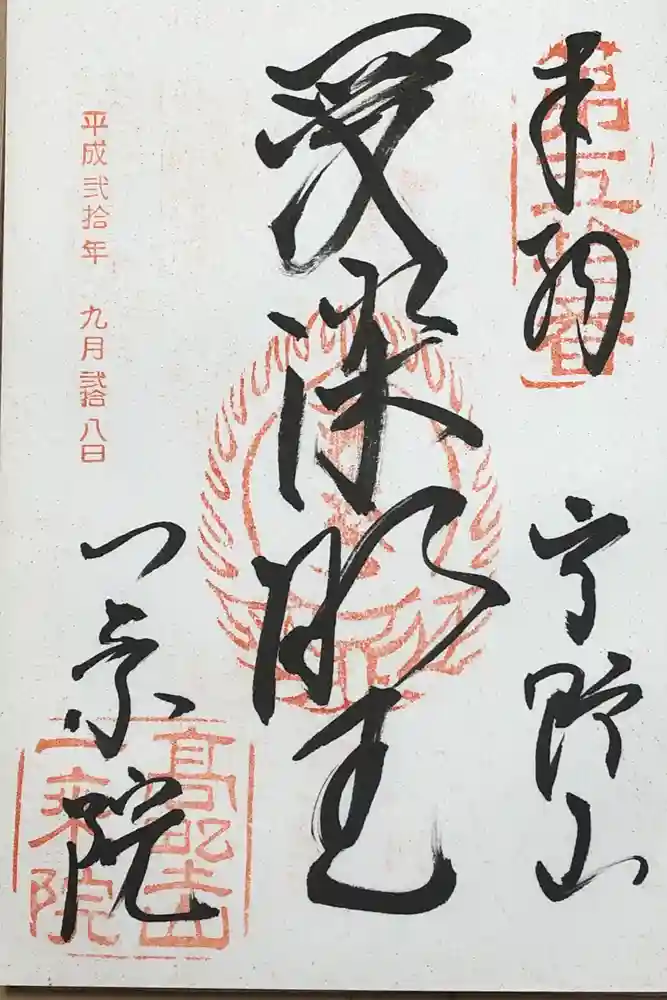 奉納
高野山
愛染明王
平成弐拾年 九月弐拾八日
一乗院
高野山
一乗院